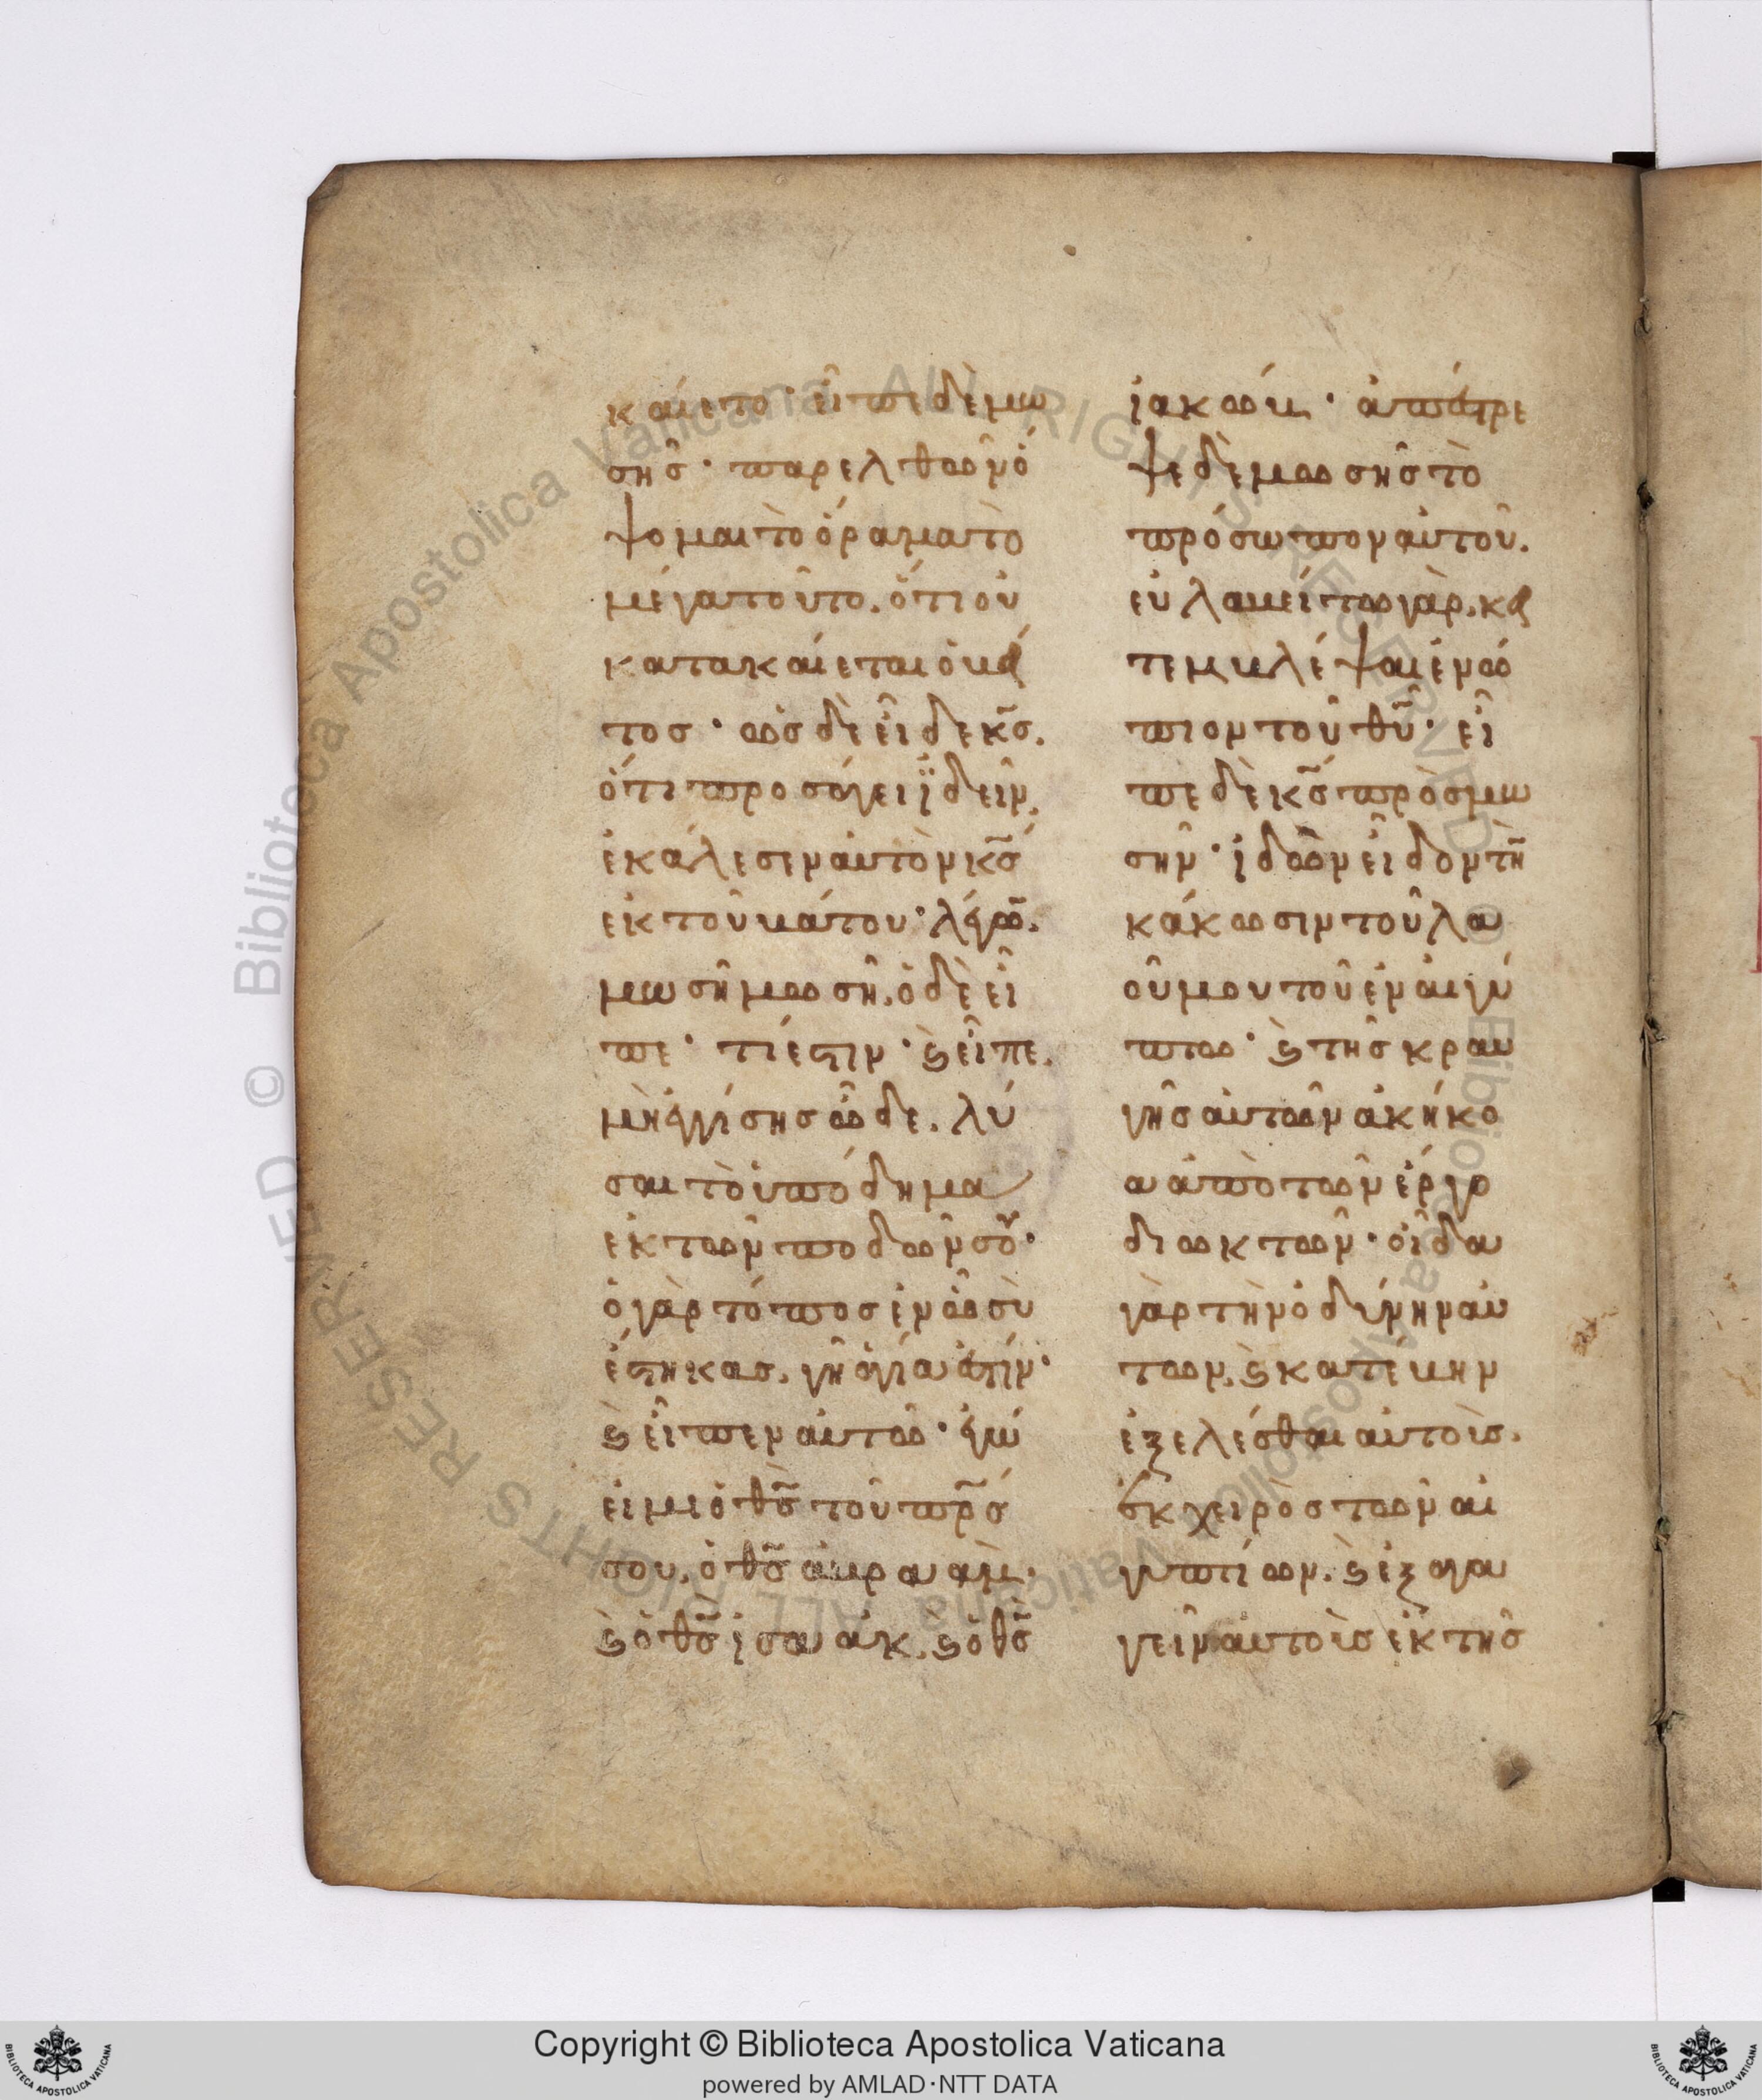 καίετο· εἶπε δὲ μω
σῆς· παρελθὼν ὄ
ψομαι τὸ ὅραμα τὸ
μέγα τοῦτο. ὅτι οὐ
κατακαίεται ὁ βά
τος· ὡς δὲ εἶδε κ̅ς̅.
ὅτι προσάγει ϊδεῖν.
ἐκάλεσεν αὐτὸν κ̅ς̅
ἐκ τοῦ βάτου· λέγω̅.
μωσῆ μωσῆ. ὁ δὲ εἶ
πε· τί ἐστιν· ϗ εἶπε.
μὴ ἐγγίσης ὧδε. λύ
σαι τὸ ὑπόδημα
ἐκ τῶν ποδῶν σου·
ὁ γὰρ τόπος ἐν ὧ σὺ
ἕστηκας. γῆ ἁγία ἐστίν·
ϗ εἶπεν αὐτῶ· ἐγώ
εἰμι ὁ θ̅ς̅ τοῦ π̅ρ̅ς̅
σου. ὁ θ̅ς̅ ἀβρααμ·
ϗ ὁ θ̅ς̅ ἰσαάκ. ϗ ὁ θ̅ς̅
ἰακώβ· ἀπέστρε
ψε δὲ μωσῆς τὸ
πρόσωπον αὐτοῦ.
εὐλαβεῖτω γὰρ. κα
τεμβλέψαι ἐνώ
πιον τοῦ θ̅υ̅· εἶ
πε δὲ κ̅ς̅ πρὸς μω
σῆν· ἰδὼν εἶδον τὴ̅
κάκωσιν τοῦ λα
οῦ μου τοῦ ἐν αἰγύ
πτω· ϗ τῆς κραυ
γῆς αὐτῶν ἀκήκο
α ἀπὸ τῶν ἐργο
διωκτῶν· οἶδα
γὰρ τὴν ὀδύνην αὐ
τῶν. ϗ κατέβην
ἐξελέσθαι αὐτοὺς.
ἐκ χειρὸς τῶν αἰ
γυπτίων. ϗ ἐξαγα
γεῖν αὐτοὺς ἐκ τῆς
Copyright © Biblioteca Apostolica Vaticana
powered by AMLAD·NTT DATA